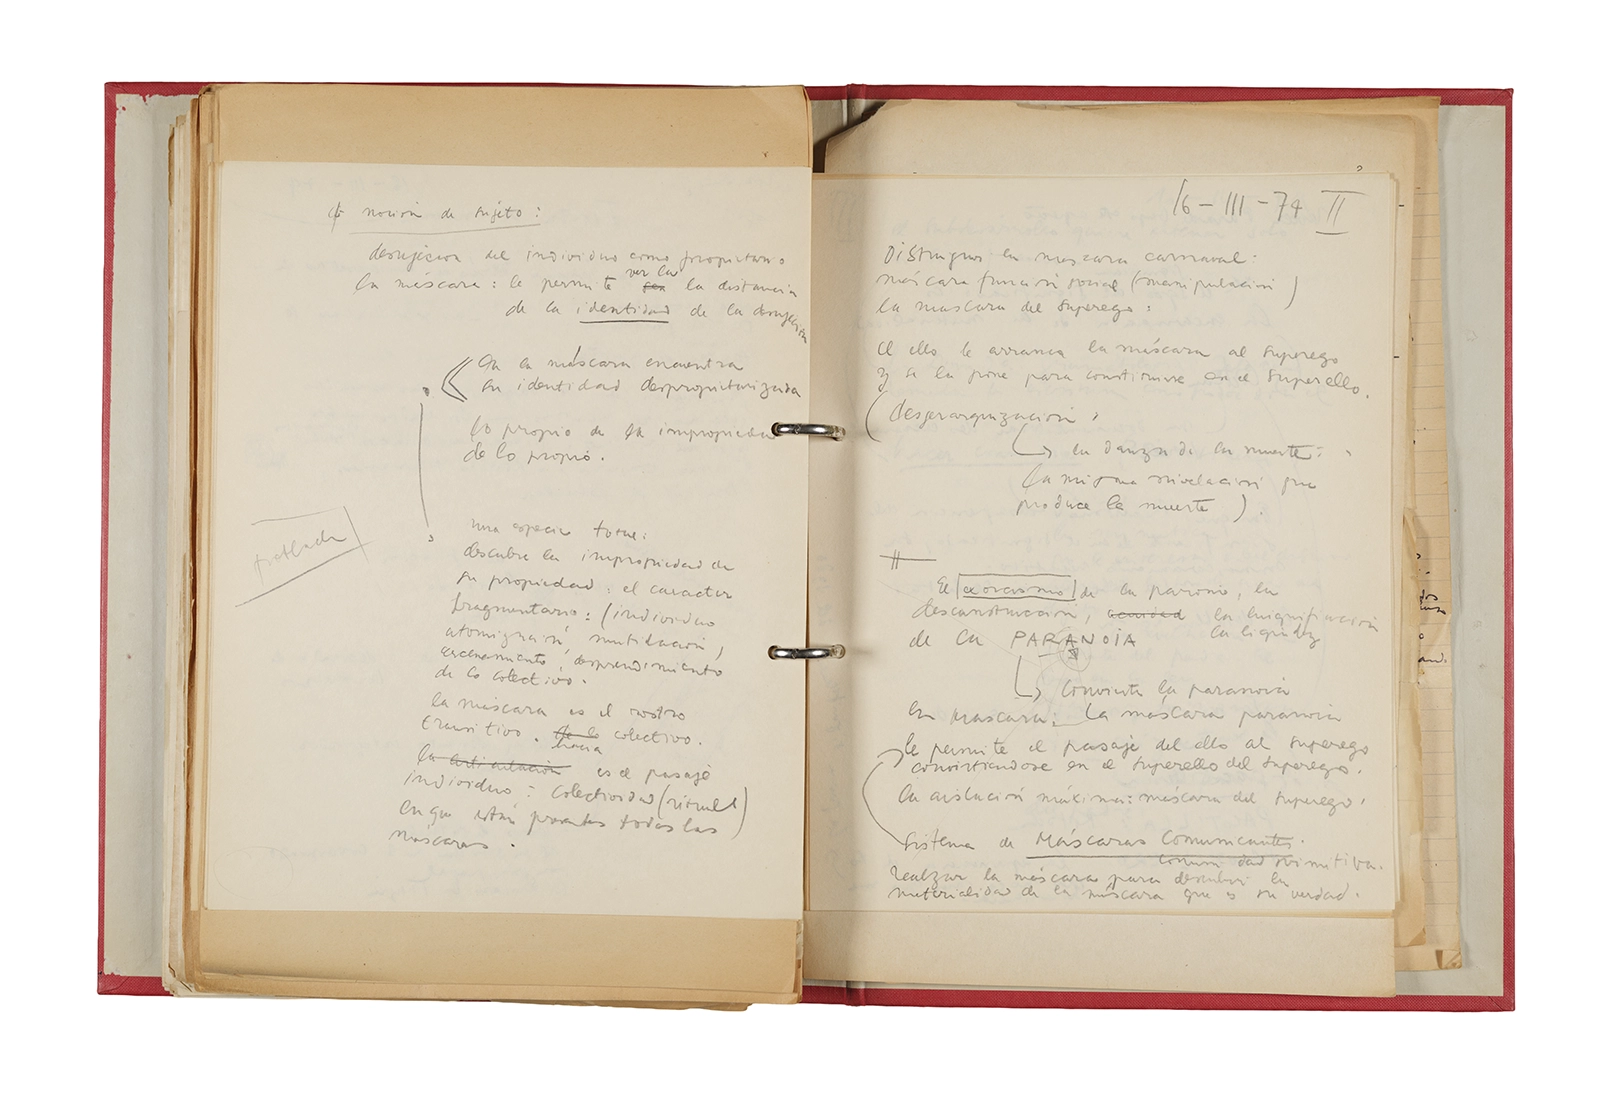 noción de sujeto:
desujeción del individuo como propietario
la máscara: le permite ver la la distancia
de la identidad de la desujeción
en la máscara encuentra
su identidad despropietarizada
lo propio de la impropiedad
de lo propio.
una especie
descubre la impropiedad de
su propiedad: el caracter
fragmentario: (individuo
atomización, mutilación,
cercenamiento, desprendimiento
de lo colectivo.
la máscara es el rostro
transitivo. de lo hacia colectivo.
la articulación es el pasaje
individuo: colectividad (ritual)
en que están presentes todas las
máscaras.
16-III-74 II
Distinguir la máscara carnaval:
máscara función social (manipulación)
la mascara del superego:
el ello le arranca la máscara al superego
y se la pone para constituirse en el superello.
(desjerarquización,
la danza de la muerte:
la misma nivelación que
produce la muerte).
II
El exorcismo de la la
desconstrucción, la
de la PARANOIA la
convierte la paranoia
en mascara: la máscara paranoia
le permite el pasaje del ello al superego
convirtiendose en el superello del superego.
la aislación máxima: máscara del superego.
Sistema de Máscaras Comunicantes.
comunidad primitiva.
realzar la máscara para descubrir la
materialidad de la máscara que es su verdad.